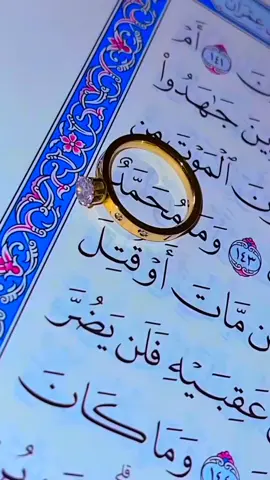 عِمْرَان
نَ ١٤١ أَمْ
ينَ جَٰهَدُوا۟
نَ ٱلْمَوْتَ مِن
١٤٣ وَمَا مُحَمَّدٌ
ن مَّاتَ أَوْ قُتِلَ
عَقِبَيْهِ فَلَن يَضُرَّ
١٤٤ وَمَا كَانَ